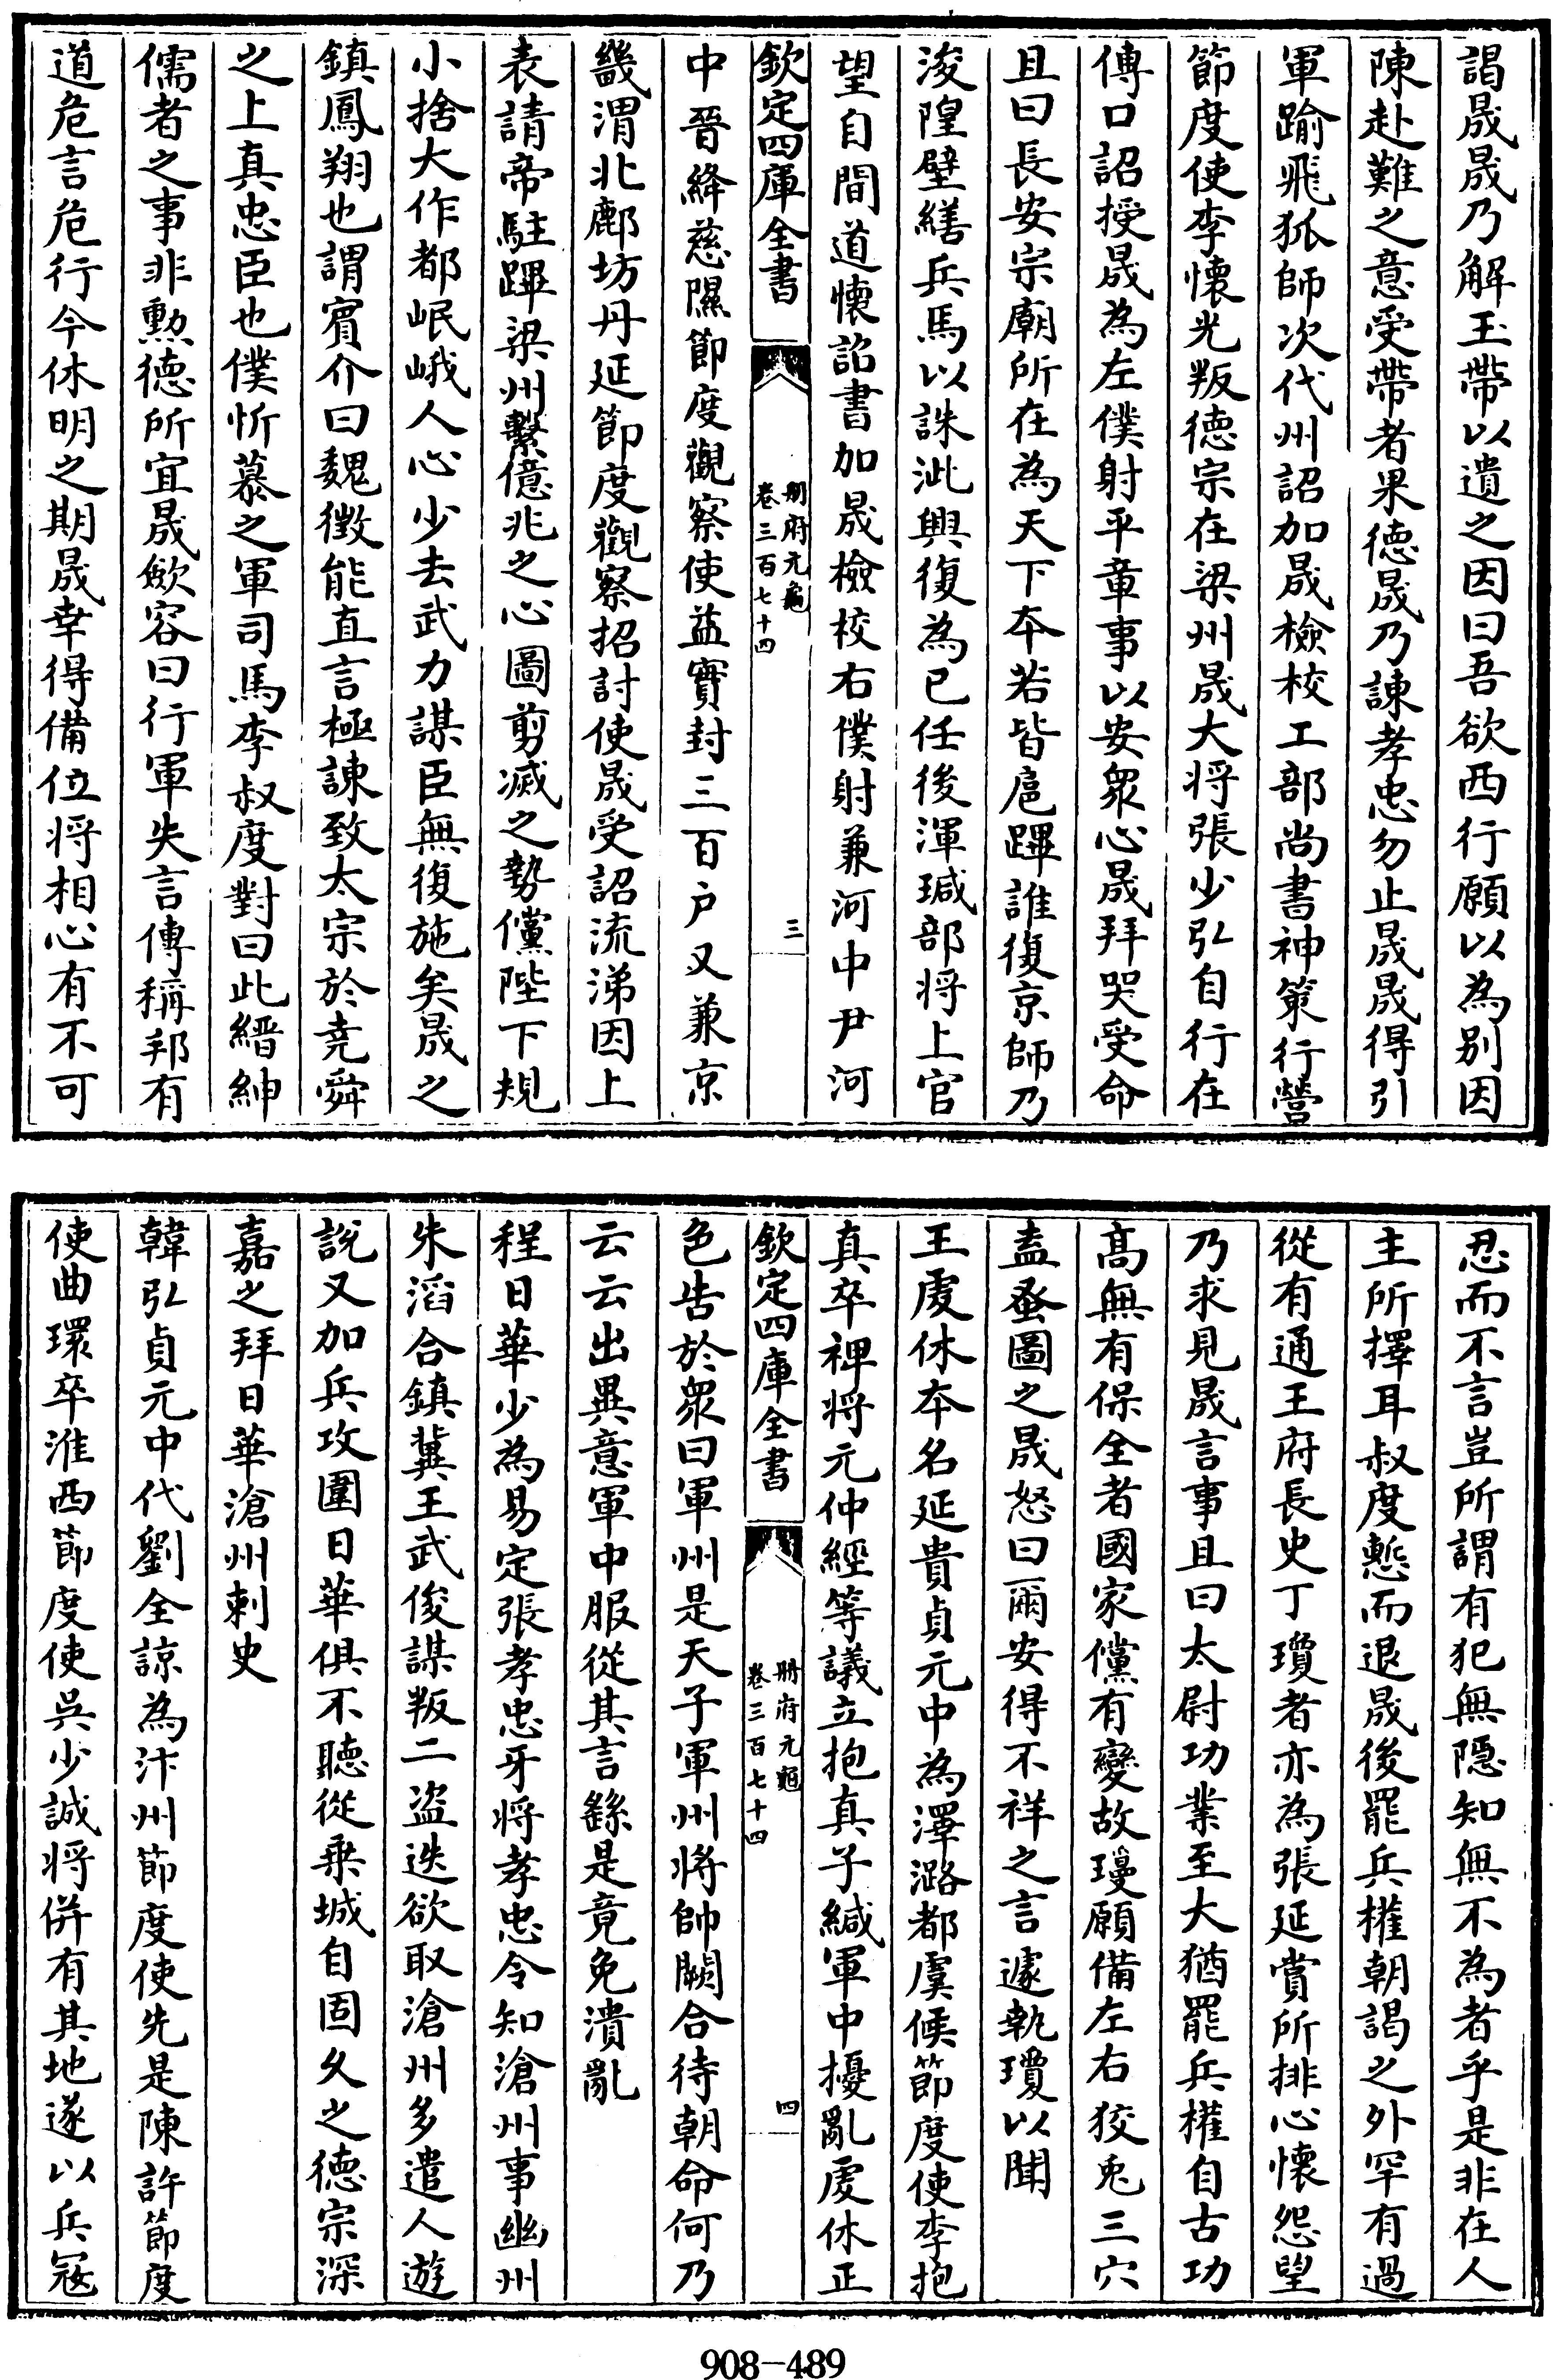 謁晟晟乃解玉帶以遺之因曰吾欲西行願以為别因
陳赴難之意受帶者果徳晟乃諫孝忠勿止晟晟得引
軍踰飛狐師次代州詔加晟檢校工部尚書神策行營
節度使李懐光叛徳宗在梁州晟大将張少弘自行在
傳口詔授晟為左僕射平章事以安衆心晟拜哭受命
且曰長安宗廟所在為天下本若皆扈蹕誰復京師乃
浚隍壁繕兵馬以誅泚興復為己任後渾瑊部将上官
望自間道懐詔書加晟檢校右僕射兼河中尹河
欽定四庫全書
冊府元龜
卷三百七十四
三
中晉絳慈隰節度觀察使益實封三百户又兼京
畿渭北鄜坊丹延節度觀察招討使晟受詔流涕因上
表請帝駐蹕梁州繫億兆之心圖剪滅之勢儻陛下規
小捨大作都岷峨人心少去武力謀臣無復施矣晟之
鎮鳳翔也謂賓介曰魏徴能直言極諫致太宗於堯舜
之上真忠臣也僕忻慕之軍司馬李叔度對曰此縉紳
儒者之事非勲徳所宜晟歛容曰行軍失言傳稱邦有
道危言危行今休明之期晟幸得備位将相心有不可
忍而不言豈所謂有犯無隠知無不為者乎是非在人
主所擇耳叔度慙而退晟後罷兵權朝謁之外罕有過
從有通王府長史丁瓊者亦為張延賞所排心懐怨望
乃求見晟言事且曰太尉功業至大猶罷兵權自古功
髙無有保全者國家儻有變故瓊願備左右狡兎三穴
盍蚤圖之晟怒曰爾安得不祥之言遽執瓊以聞
王䖍休本名延貴貞元中為澤潞都虞候節度使李抱
真卒裨将元仲經等議立抱真子緘軍中擾亂䖍休正
欽定四庫全書
冊府元龜
卷三百七十四
四
色告於衆曰軍州是天子軍州将帥闕合待朝命何乃
云云出異意軍中服從其言繇是竟免潰亂
程日華少為易定張孝忠牙将孝忠令知滄州事幽州
朱滔合鎮冀王武俊謀叛二盗迭欲取滄州多遣人遊
說又加兵攻圍日華俱不聽從乗城自固久之徳宗深
嘉之拜日華滄州刺史
韓弘貞元中代劉全諒為汴州節度使先是陳許節度
使曲環卒淮西節度使呉少誠将併有其地遂以兵冦
908-489